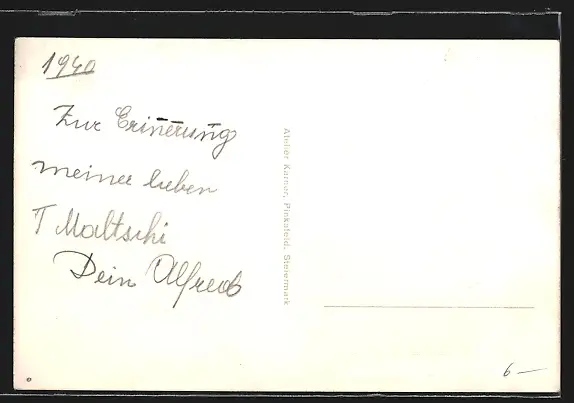 1940
Zur Erinerung
meiner lieben
T Maltschi
Dein Alfred
Atelier Karner, Pinkafeld, Steiermark
6 —